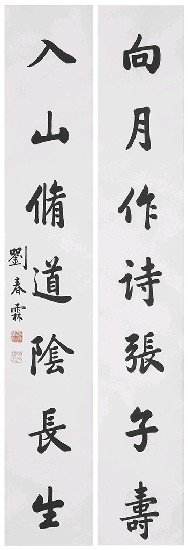 向月作诗張子壽
入山脩道陰長生
劉春霖